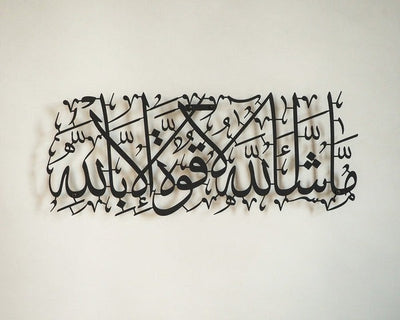 مَّا شَاءَ اللَّهُ لَا قُوَّةَ إِلَّا بِاللَّهِ